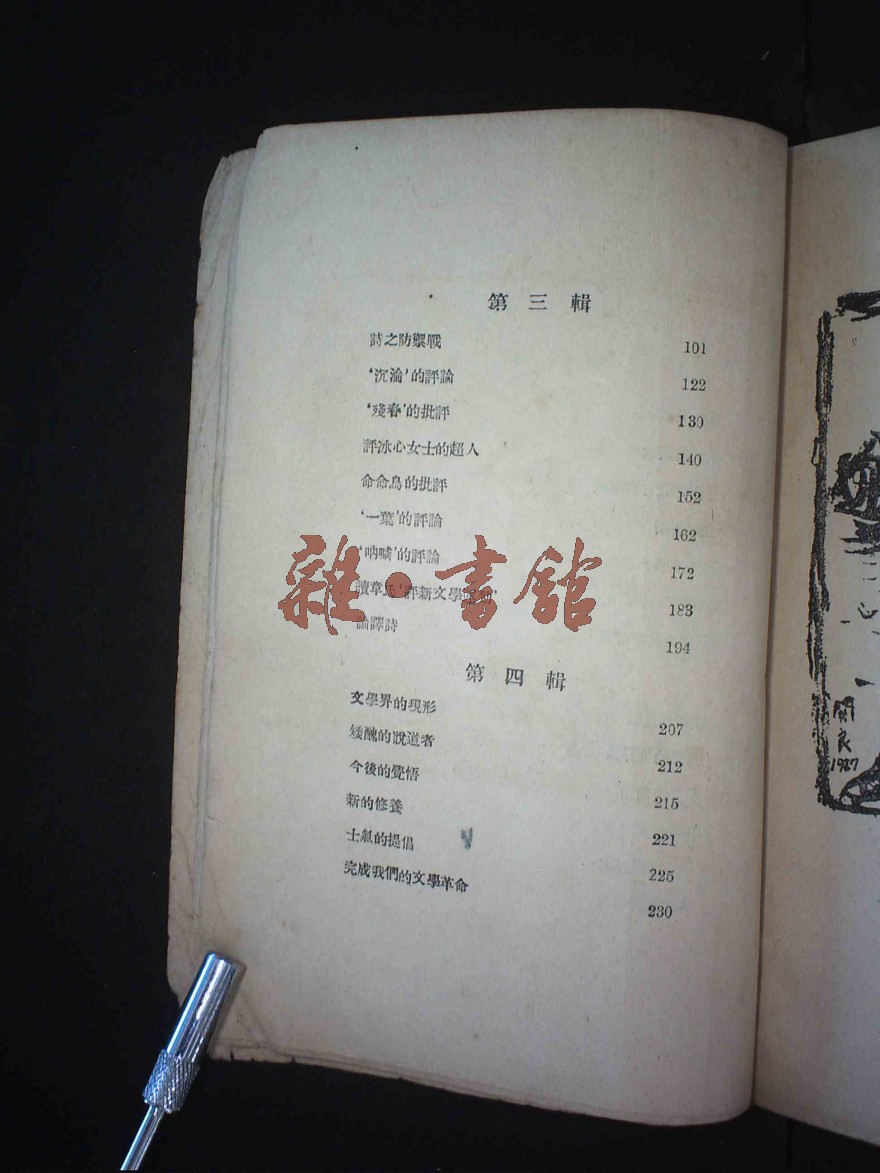 第三輯
詩之防禦戰 101
‘沉淪’的評論 122
‘殘春’的批評 130
評冰心女士的超人 140
命命鳥的批評 152
‘一葉’的評論 162
‘吶喊’的評論 172
讀章氏‘評新文學 183
論譯詩 194
第四輯
文學界的現形 207
矮醜的說道者 212
今後的覺悟 215
新的修養 221
士氣的提倡 225
完成我們的文學革命 230
雜·書舘
關良
1927